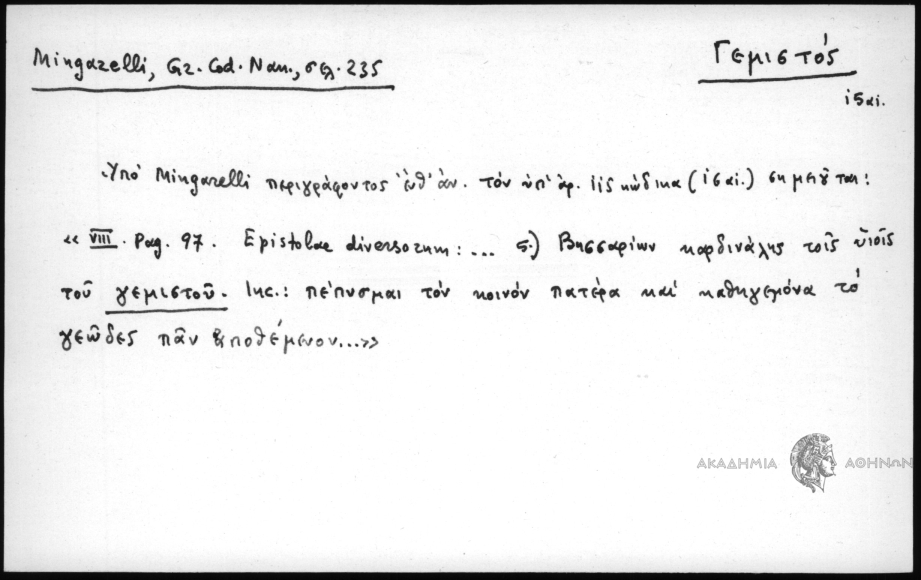 Mingarelli, Gr. Cod. Nan., σελ. 235
Γεμιστός
ις αι.
Υπό Mingarelli περιγράφοντος ἔνθ' ἀν. τόν ὑπ' ἀρ. κώδικα (ις αι.) σημειοῦται:
« VIII. Pag. 97. Epistolae diversorum: ... ς.) Βησσαρίων καρδινάλης τοῖς υἱοῖς
τοῦ γεμιστοῦ. Inc.: πέπυσμαι τόν κοινόν πατέρα καί καθηγεμόνα τό
γεῶδες πᾶν ἀποθέμενον...»
ΑΚΑΔΗΜΙΑ ΑΘΗΝΩΝ